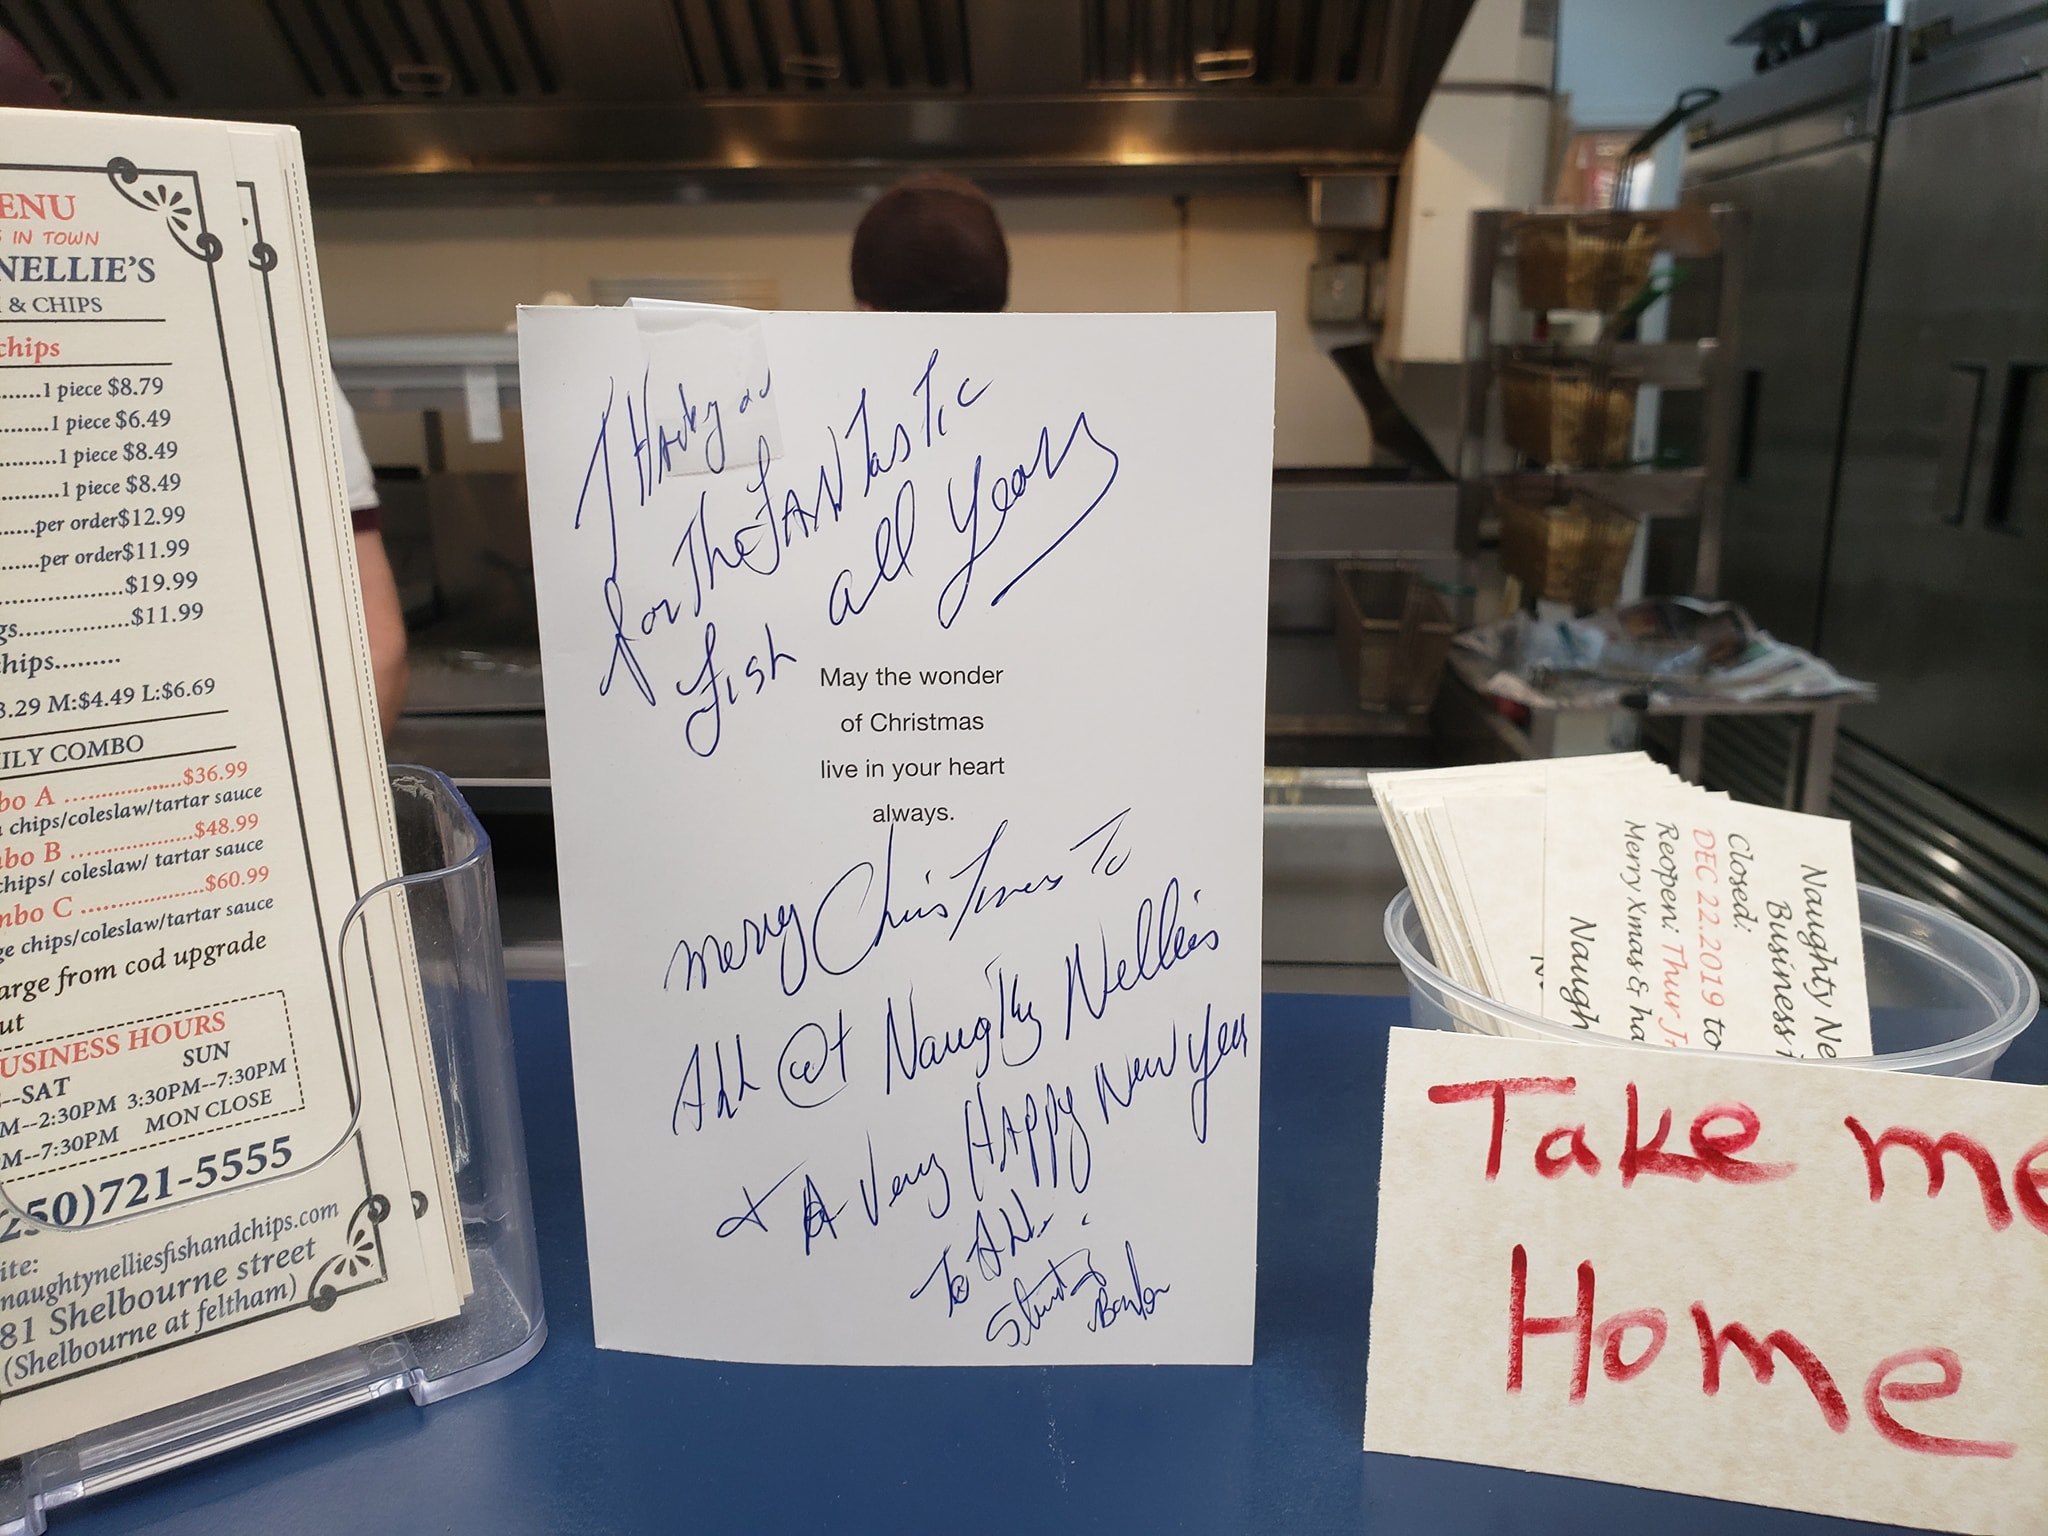 ENU
IN TOWN
NELLIE'S
& CHIPS
chips
.......1 piece $8.79
.........1 piece $6.49
..........1 piece $8.49
...........1 piece $8.49
......per order$12.99
.......per order$11.99
.....................$19.99
gs.................$11.99
hips.........
3.29 M:$4.49 L:$6.69
ILY COMBO
bo A ...................$36.99
chips/coleslaw/tartar sauce
bo B ...................$48.99
chips/ coleslaw/ tartar sauce
mbo C ...................$60.99
ge chips/coleslaw/tartar sauce
arge from cod upgrade
ut
USINESS HOURS
SUN
--SAT
M--2:30PM 3:30PM--7:30PM
M--7:30PM MON CLOSE
250)721-5555
ite:
naughtynelliesfishandchips.com
81 Shelbourne street
(Shelbourne at feltham)
THANKYOU
for The FANTasTic
fish all Year
May the wonder
of Christmas
live in your heart
always.
Merry Christmas To
All @t Naughty Nellies
+ A Very HAppy New Year
To All
Naughty Ne
Business
Closed:
DEC 22.2019 to
Reopen: Thur J
Merry Xmas & ha
Naugh
Take me
Home